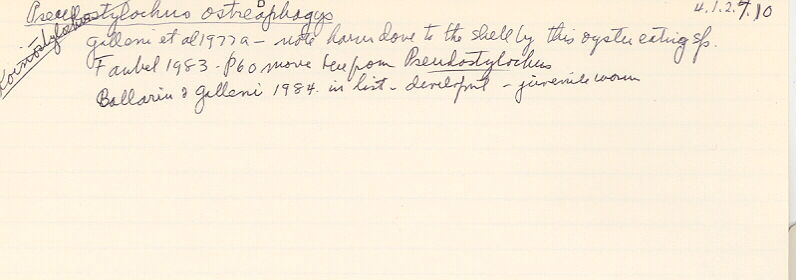 Pseudostylochus ostreophagus 4.1.27.10
Koinostylochus
Galleni et al 1977a - note harm done to the shell by this oyster eating sp.
Faubel 1983 - p60 move here from Pseudostylochus
Ballarin & Galleni 1984. in list - developmt - juvenile worm